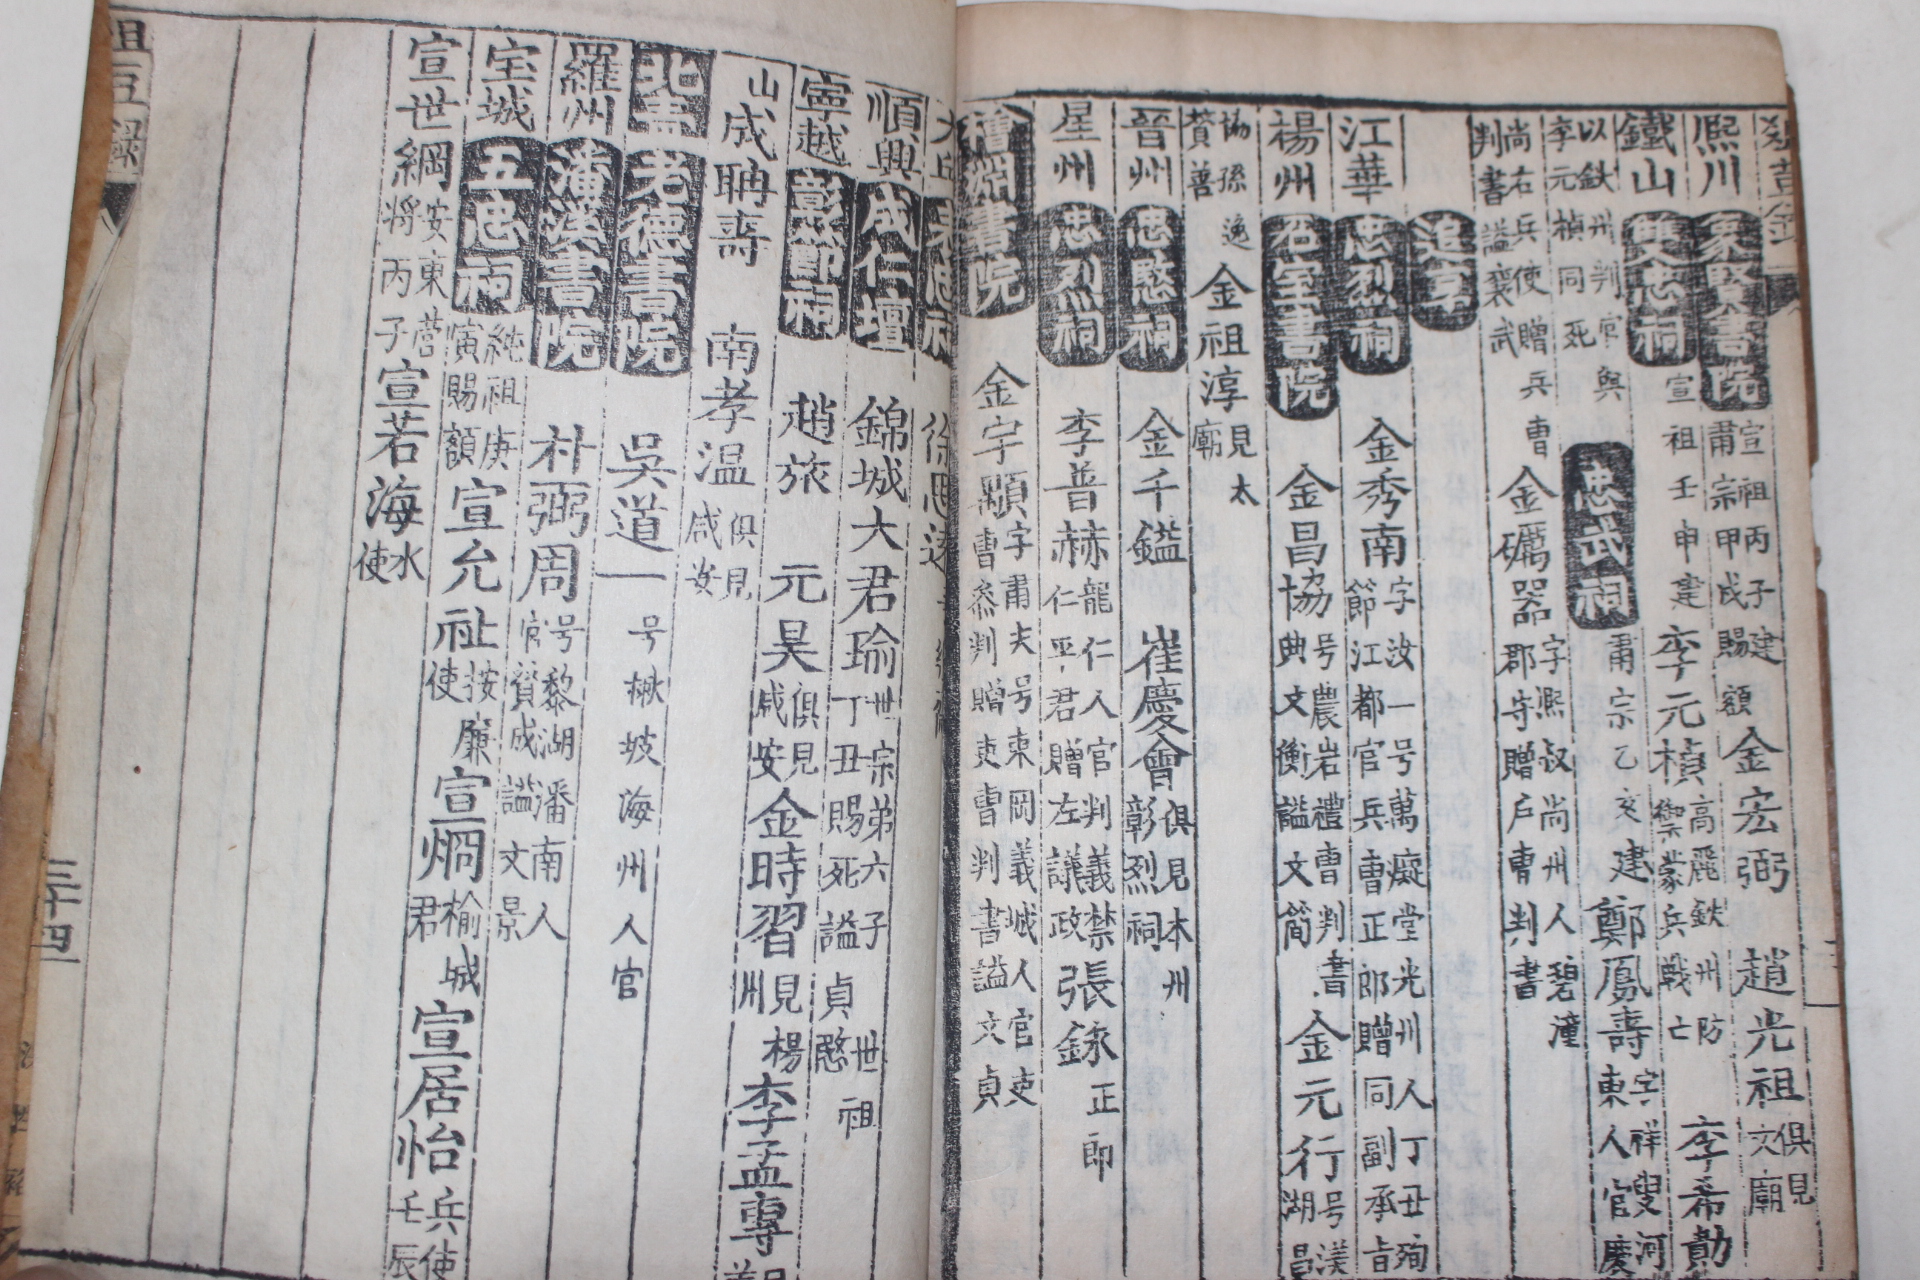 熙川 象賢書院 宣祖丙子建肅宗甲戌賜額 金宏弼 趙光祖 俱見文廟
鐵山 雙忠祠 宣祖壬申建 李元楨 高麗鉄州防禦蒙兵戰亡 李希勣
以鉄州判官與李元楨同死 忠武祠 肅宗乙亥建 鄭鳳壽 字祥叟河東人官慶
尚右兵使贈兵曹判書謚襄武 金礪器 字熙叔尚州人碧潼郡守贈戶曹判書
追享
江華 忠烈祠 金秀南 字汝一号萬癡堂光州人丁丑殉節江都官兵曹正郎贈同副承旨
楊州 石室書院 金昌協 号農岩禮曹判書典文衡謚文簡 金元行 号渼湖昌
協孫逸賛善 金祖淳 見太廟
晉州 忠愍祠 金千鎰 崔慶會 俱見本州彰烈祠
星州 忠烈祠 李普赫 龍仁人官判義禁仁平君贈左議政 張錄 正郎
書院 金宇顒 字肅夫号東岡義城人官吏曹叅判贈吏曹判書謚文貞
徐思遠
順興 成仁壇 錦城大君瑜 世宗弟六子世祖丁丑賜死謚貞愍
寧越 彰節祠 趙旅 元昊 俱見咸安 金時習 見楊州 李孟專
山 成聃壽 南孝温 俱見咸安
北 老德書院 吳道一 号楸坡海州人官
羅州 潘溪書院 朴弼周 号黎湖潘南人官賛成謚文景
宝城 五忠祠 純祖庚寅賜額 宣允祉 按廉使 宣炯 楡城君 宣居怡 兵使壬辰
宣世綱 安東營將丙子 宣若海 水使
三十四